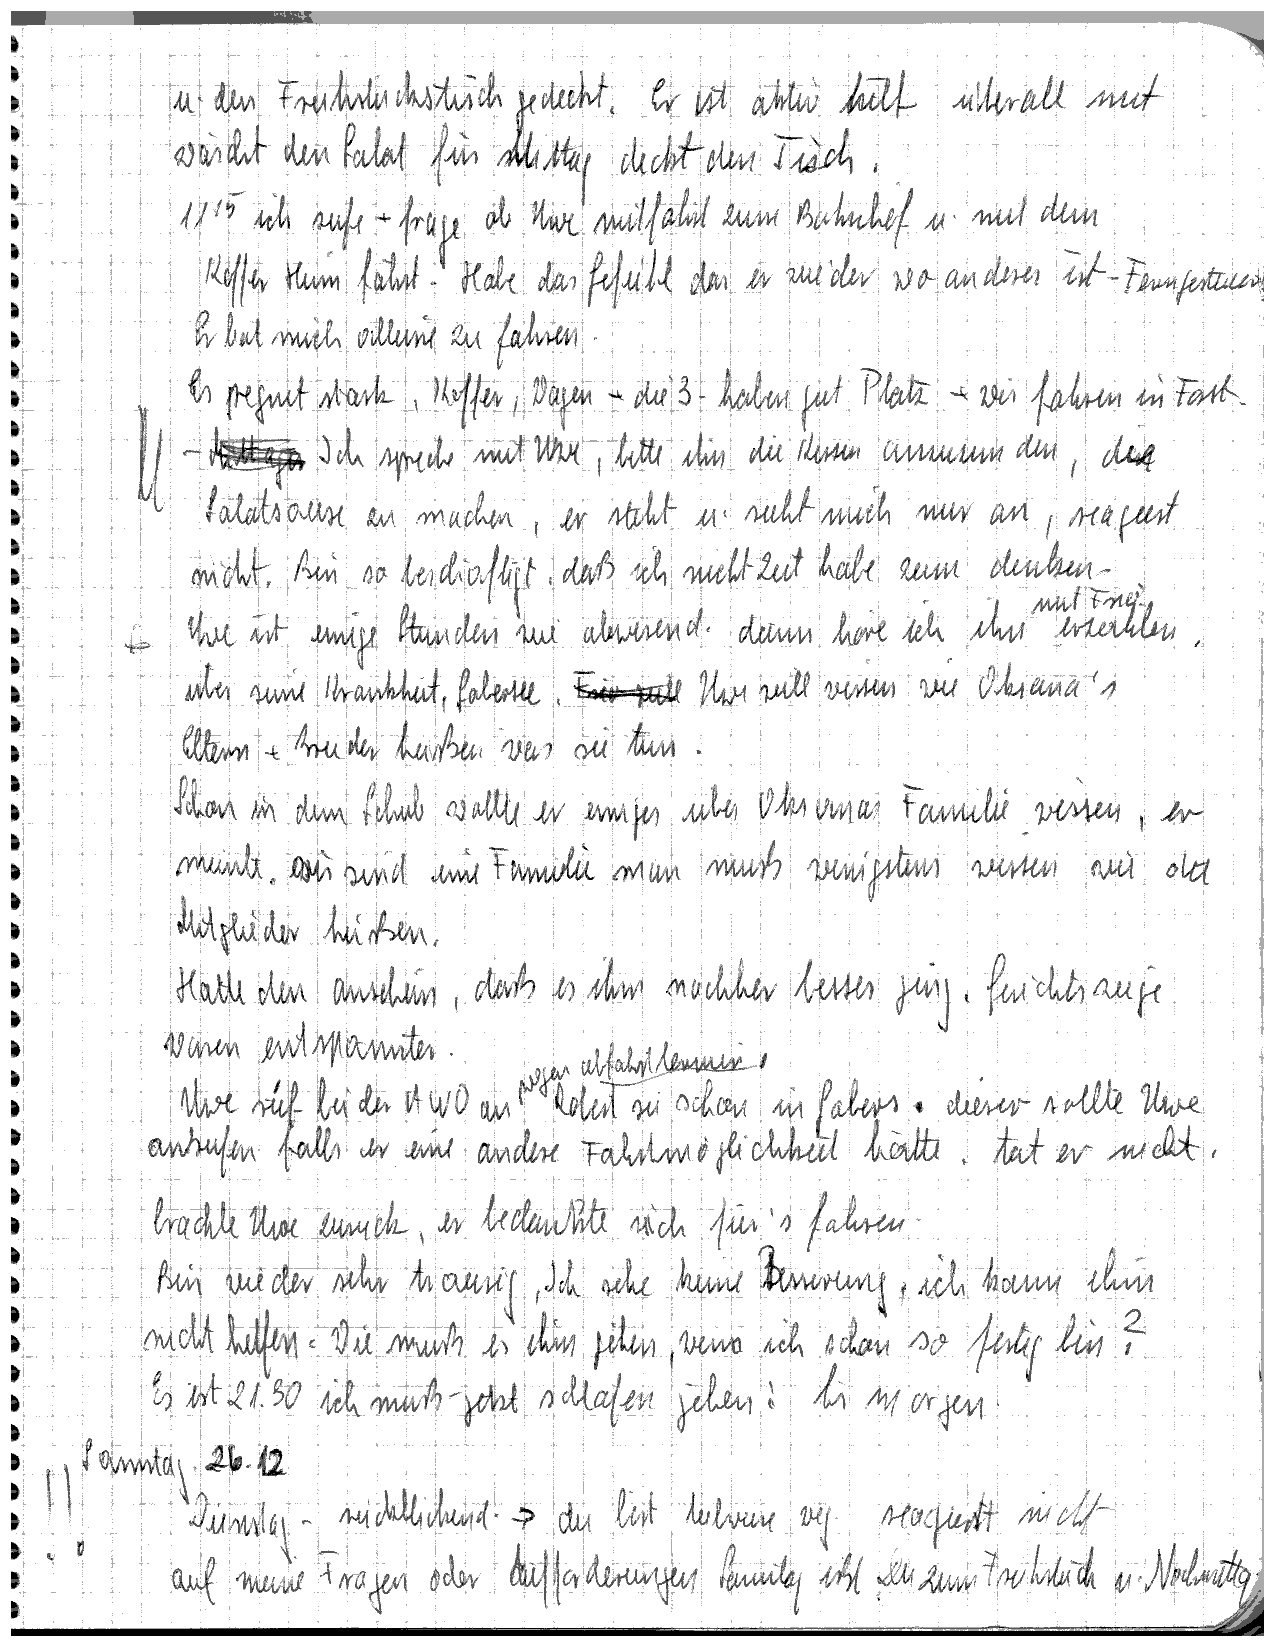 u. den Frühstückstisch gedeckt. Er ist aktiv hilft überall mit
wäscht den Salat für Mittag deckt den Tisch.
11 15 ich rufe + frage ob Uwe mitfährt zum Bahnhof u. mit dem
Koffer Heim fährt - Habe das Gefühl das er wieder wo anderes ist - Ferngesteuert
Er bat mich alleine zu fahren.
Es regnet stark, Koffer, Wagen + die 3 - haben gut Platz + wir fahren in Fort.
- Ich spreche mit Uwe, bitte ihn die Kerzen anzuzünden, die
Salatsause zu machen, er steht u. sieht mich nur an, reagiert
nicht. Bin so beschäftigt, daß ich nicht Zeit habe zum denken -
mit Frie.
Uwe ist einige Stunden wie abwesend. dann höre ich ihn erzählen,
über seine Krankheit, Gabersee. Uwe will wissen wie Oksana's
Eltern + Bruder heißen was sie tun.
Schon in dem Schub wollte er einiges über Oksanas Familie wissen, er
meinte, wir sind eine Familie man muß wenigstens wissen wie die
Mitglieder heißen.
Hatte den anschein, daß es ihm nachher besser ging. Gesichtszüge
waren entspannter.
wegen abfahrttermin.
Uwe rief bei der AWO an Robert sei schon in Gabers. dieser sollte Uwe
anrufen falls er eine andere Fahrtmöglichkeit hätte. tat er nicht.
brachte Uwe zurück, er bedankte sich für's fahren.
Bin wieder sehr traurig, Ich sehe keine Besserung, ich kann ihm
nicht helfen. Wie muß es ihm gehen, wenn ich schon so fertig bin?
Es ist 21.30 ich muß jetzt schlafen gehen! bis morgen.
Sonntag 26.12
!! Dienstag - rückblickend. → du bist teilweise weg. reagierst nicht
auf meine Fragen oder Aufforderungen Samstag ißt Du zum Frühstück u. Nachmittag